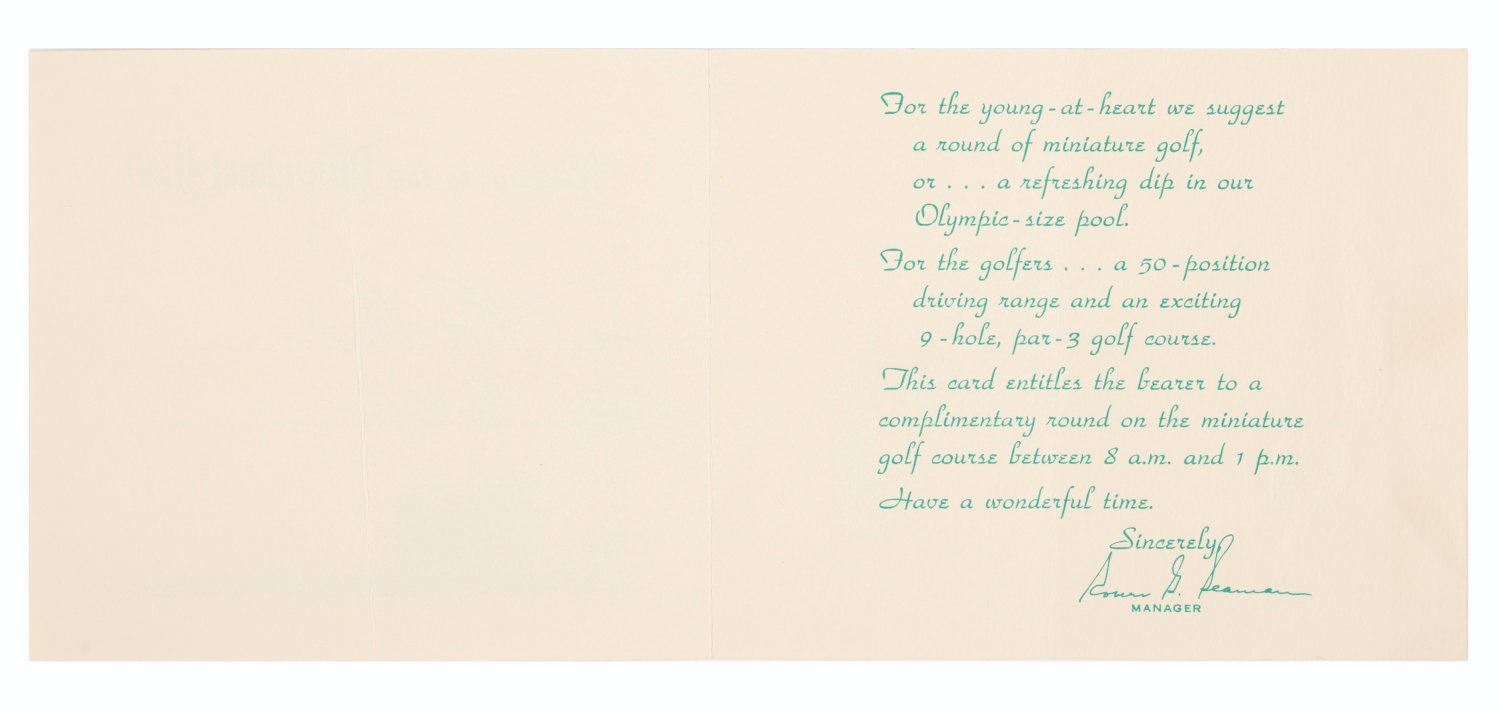 For the young-at-heart we suggest
a round of miniature golf,
or . . . a refreshing dip in our
Olympic-size pool.
For the golfers . . . a 50-position
driving range and an exciting
9-hole, par-3 golf course.
This card entitles the bearer to a
complimentary round on the miniature
golf course between 8 a.m. and 1 p.m.
Have a wonderful time.
Sincerely,
G. Seaman
MANAGER